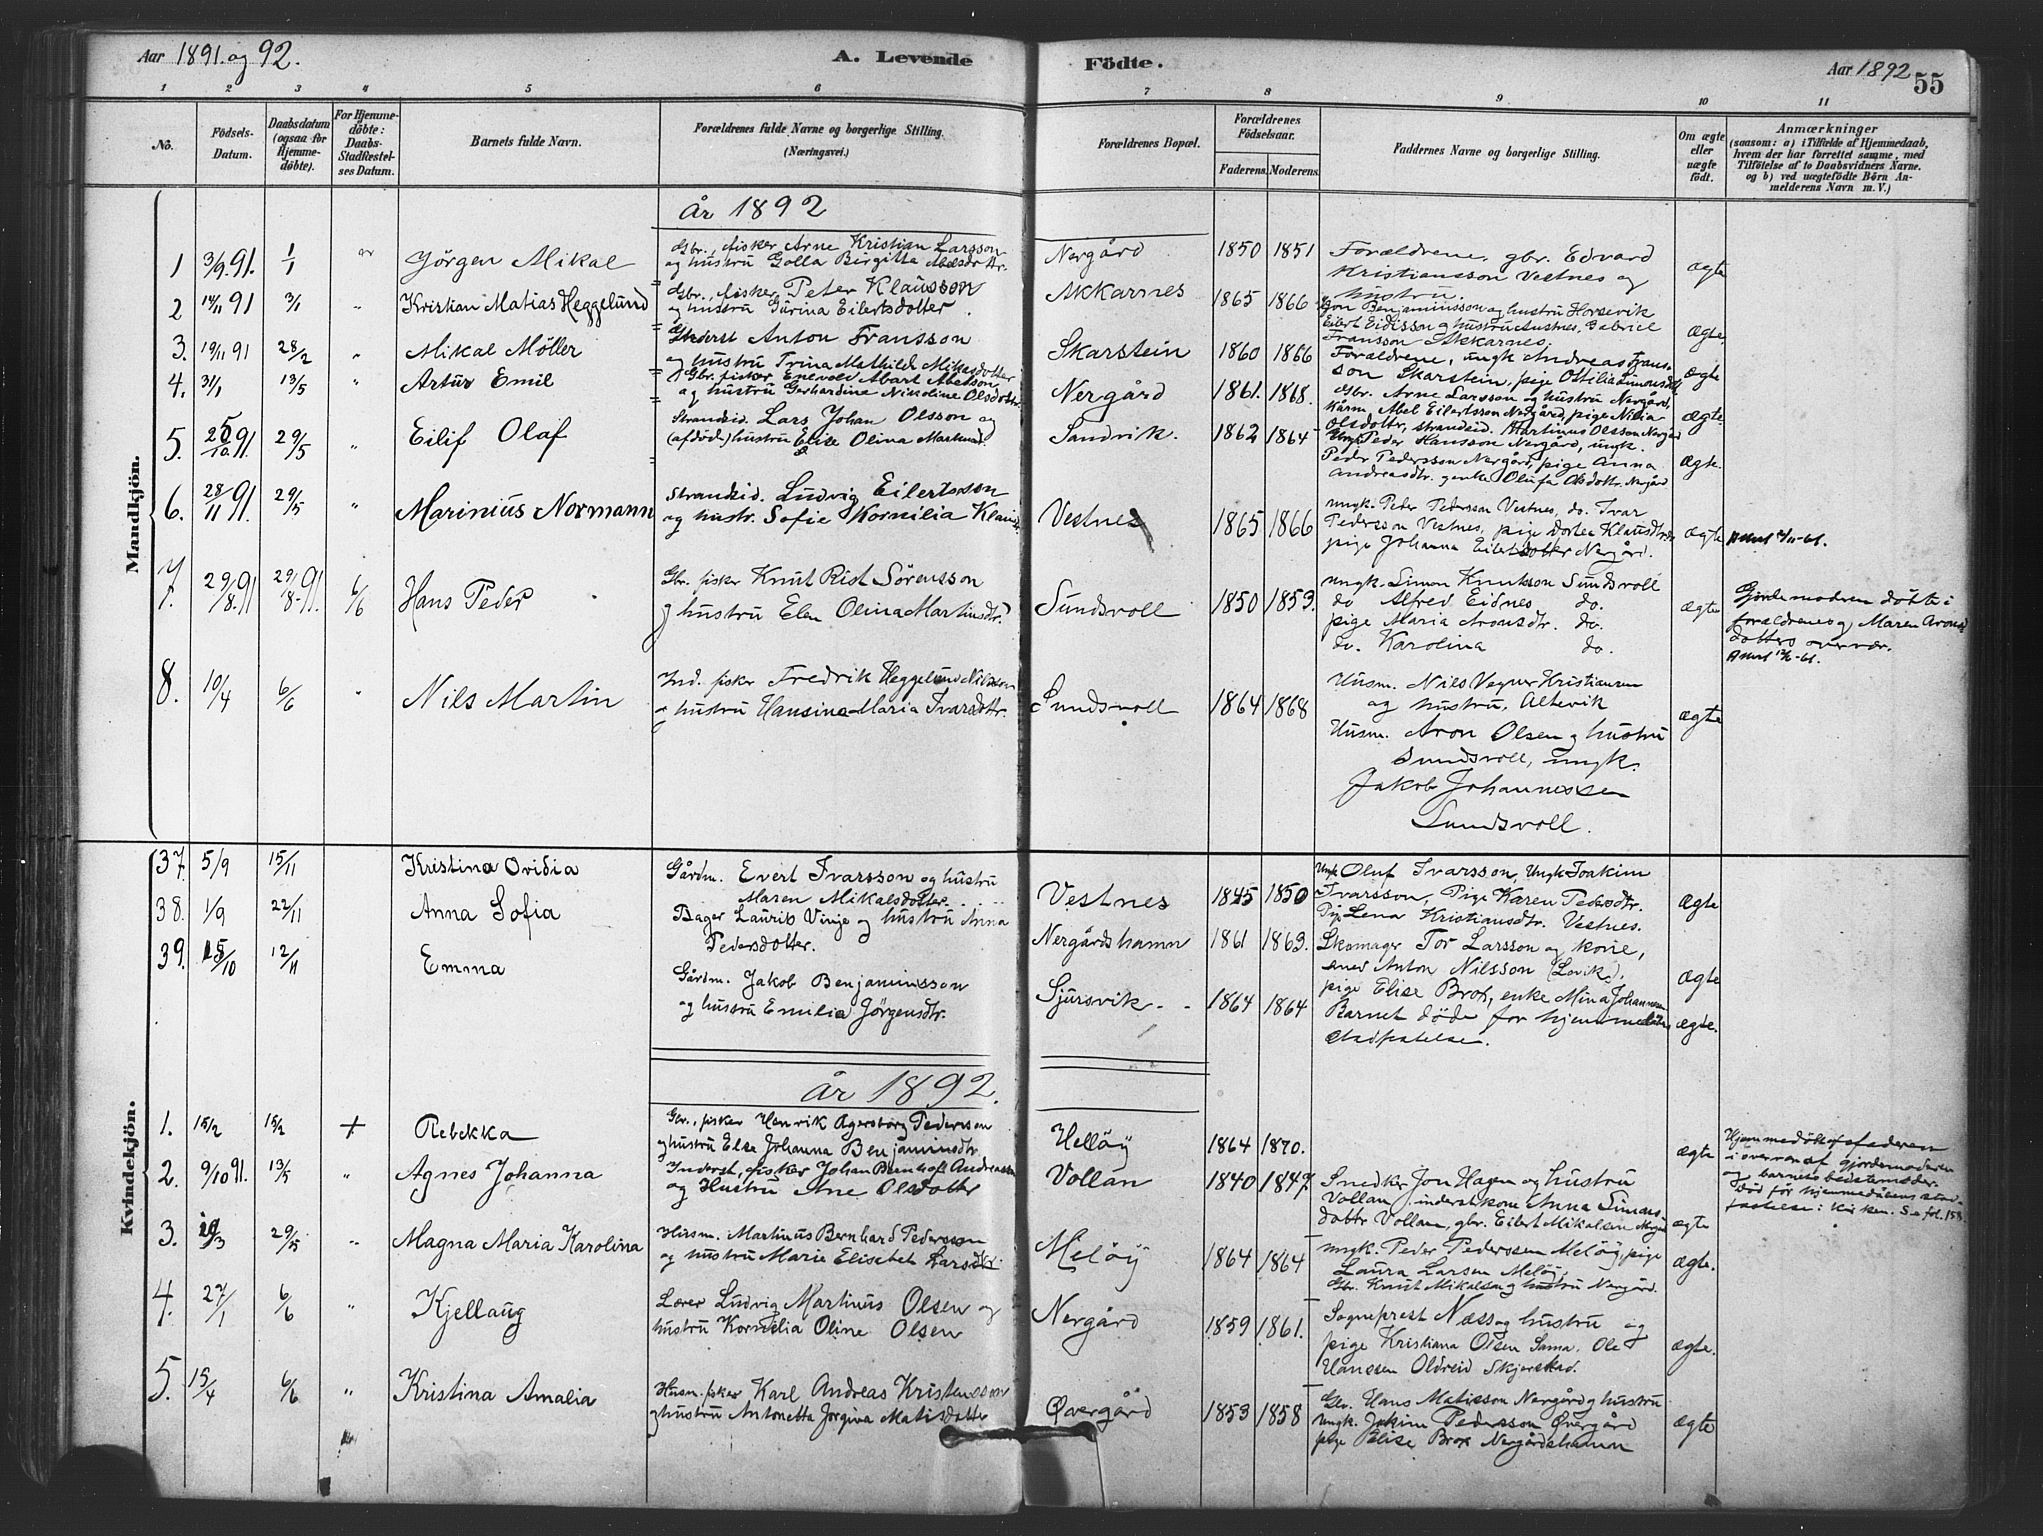 Aar 1891. og 92.
A. Levende Födte.
Aar 1892
55
1 2 3 4 5 6 7 8 9 10 11
No.
Födsels-Datum.
Daabsdatum (ogsaa for Hjemme-döbte).
For Hjemme-döbte: Daabs-Stadfæstel-ses Datum.
Barnets fulde Navn.
Forældrenes fulde Navne og borgerlige Stilling. (Næringsvei.)
Forældrenes Bopæl.
Forældrenes Födselsaar.
Faderens. Moderens.
Faddernes Navne og borgerlige Stilling.
Om ægte eller uægte födt.
Anmærkninger
(saasom: a) i Tilfælde af Hjemmedaab,
hvem der har forrettet samme, med
Tilföielse af to Daabsvidners Navne.
og b) ved uægtefödte Börn An-
melderens Navn m. V.)
Mandkjön.
år 1892
1 3/9 91. 1/1 Jörgen Mikal
Gbr., fisker Arne Kristian Larsson
og hustru Golla Birgitta Abelsdttr.
Nergård 1850 1851
Forældrene, gbr. Edvard
Kristiansson Vestnes og
hustru.
ægte
2 14/11 91 3/1 " Kristian Matias Heggelund
Gbr., fisker Peter Klausson
og hustru Gurina Eilertsdotter.
Akkarnes 1865 1866
Jon Benjaminsson og hustru Horsevik
Eilert Eidisson og hustru Austnes, Gabriel
Fransson Akkarnes.
ægte.
3. 19/11 91 28/2 " Mikal Möller
Inderst Anton Fransson
og hustru Trina Mathilde Mikalsdotter
Skarstein 1860 1866
Forældrene, ungk Andreas Frans-
son Skarstein, pige Ottilia Simonsdtr
ægte
4. 31/1 13/5 " Artur Emil
Gbr. fisker Enevold Abart Abelsson
og hustru Gerhardine Nikoline Olsdottr.
Nergård 1861. 1868.
Gbr. Arne Larsson og hustru Nergård,
Kårm. Abel Eilertsson Nergård, pige Nilia
Olsdottr, strandsid. Martinus Olsson Nergård
ægte.
5. 25/10 91. 29/5 " Eilif Olaf
Strandsid. Lars Johan Olsson og
(afdöde) hustru Elise Olina Markusd.
Sandvik. 1862 1864
Ungk. Peder Hansson Nergård, ungk.
Peder Pedersson Nergård, pige Anna
Andreasdtr. enke Olufa Olsdottr. Nergård
ægte.
6. 28/11 91. 29/5 " Marinius Normann
Strandsid. Ludvig Eilertsson
og hustr. Sofie Kornilia Klausd.
Vestnes 1865 1866
ungk. Peder Pedersson Vestnes, do. Ivar
Pedersson Vestnes, pige Dortea Klausdtr.
pige Johanna Eilertsdotter Nergård.
ægte
7. 29/8. 91 29/8. 91. 6/6 Hans Peder
Gbr. fisker Knut Rist Sörensson
og hustru Elen Olina Martinsdtr.
Sundsvoll 1850 1853.
ungk. Simon Knutsson Sundsvoll
do Alfred Eidnes do.
pige Maria Aronsdtr. do.
do. Karolina do.
ægte
Gjordemodren döbte i
forældrenes og Maren Arons-
dotters overvær.
8. 10/4 6/6 " Nils Martin
Ind. fisker Fredrik Heggelund Nilsson
og hustru Hansine Maria Ivarsdottr.
Sundsvoll 1864 1868
Husm. Nils Vegner Kristiansen
og hustru, Altevik
Husm. Aron Olsen og hustru
Sundsvoll, ungk.
Jakob Johannessen
Sundsvoll.
ægte
Kvindekjön.
37. 5/9 15/11 Kristina Ovidia
Gårdm. Evert Ivarsson og hustru
Maren Mikalsdotter.
Vestnes 1845 1850
Ungk Oluf Ivarsson, Ungk Joakim
Ivarsson, Pige Karen Pedersdtr.
Pig. Lena Kristiansdtr. Vestnes.
ægte
38. 1/9 22/11 Anna Sofia
Bager Laurits Vinje og hustru Anna
Pedersdotter.
Nergårdshamn 1861 1863.
Skomager Tor Larsson og kone,
smed Anton Nilsson (Lovik),
pige Elise Brox, enke Mina Johannesen
ægte
39. 15/10 12/11 Emma
Gårdm. Jakob Benjaminsson
og hustru Emilie Jörgensdtr.
Sjursvik 1864 1864
Barnet döde for hjemmedåbens
stadfæstelse.
ægte.
år 1892.
1. 15/2 15/2 + Rebekka
Gbr., fisker Henrik Agersborg Pedersson
og hustru Else Johanna Benjaminsdtr.
Hellöy 1864 1870.
ægte
Hjemmedöbt af faderen
i overvær af gjordemoderen
og barnets bedstemoder.
Död för hjemmedåbens stad-
fæstelse i kirken. Se fol. 153.
2. 9/10 91. 13/5 " Agnes Johanna
Inderst, fisker Johan Bernhoft Andreassen
og Hustru Ane Olsdotter
Vollan 1840 1847.
Snedker Jon Hagen og hustru
Vollan, inderstkone Anna Simons-
dottr Vollan, gbr. Eilert Mikalsen Nergård
ægte
3. 19/3 29/5 " Magna Maria Karolina
Husm. Martinus Bernhard Pedersson
og hustru Marie Elisabet Larsdtr.
Melöy 1864 1864
ungk. Peder Pederssen Melöy, pige
Laura Larsen Melöy,
Gbr. Knut Mikalsen og hustru Nergård.
ægte.
4. 27/1 6/6 " Kjellaug
Lærer Ludvig Martinus Olsen og
hustru Kornelia Oline Olsen
Nergård 1859 1861.
Sogneprest Næss og hustru og
pige Kristiana Olsen Sama. Ole
Hanssen Oldreid Skjerstad.
ægte.
5. 15/4 6/6 " Kristina Amalia
Husm. fisker Karl Andreas Kristensson
og hustru Antonetta Jorgina Matisdotter
Øvergård 1853 1858
Gbr. Hans Matisson Nergård og hustru
ungk. Jokim Pedersson Øvergård
pige Elise Brox Nergårdshamn
ægte